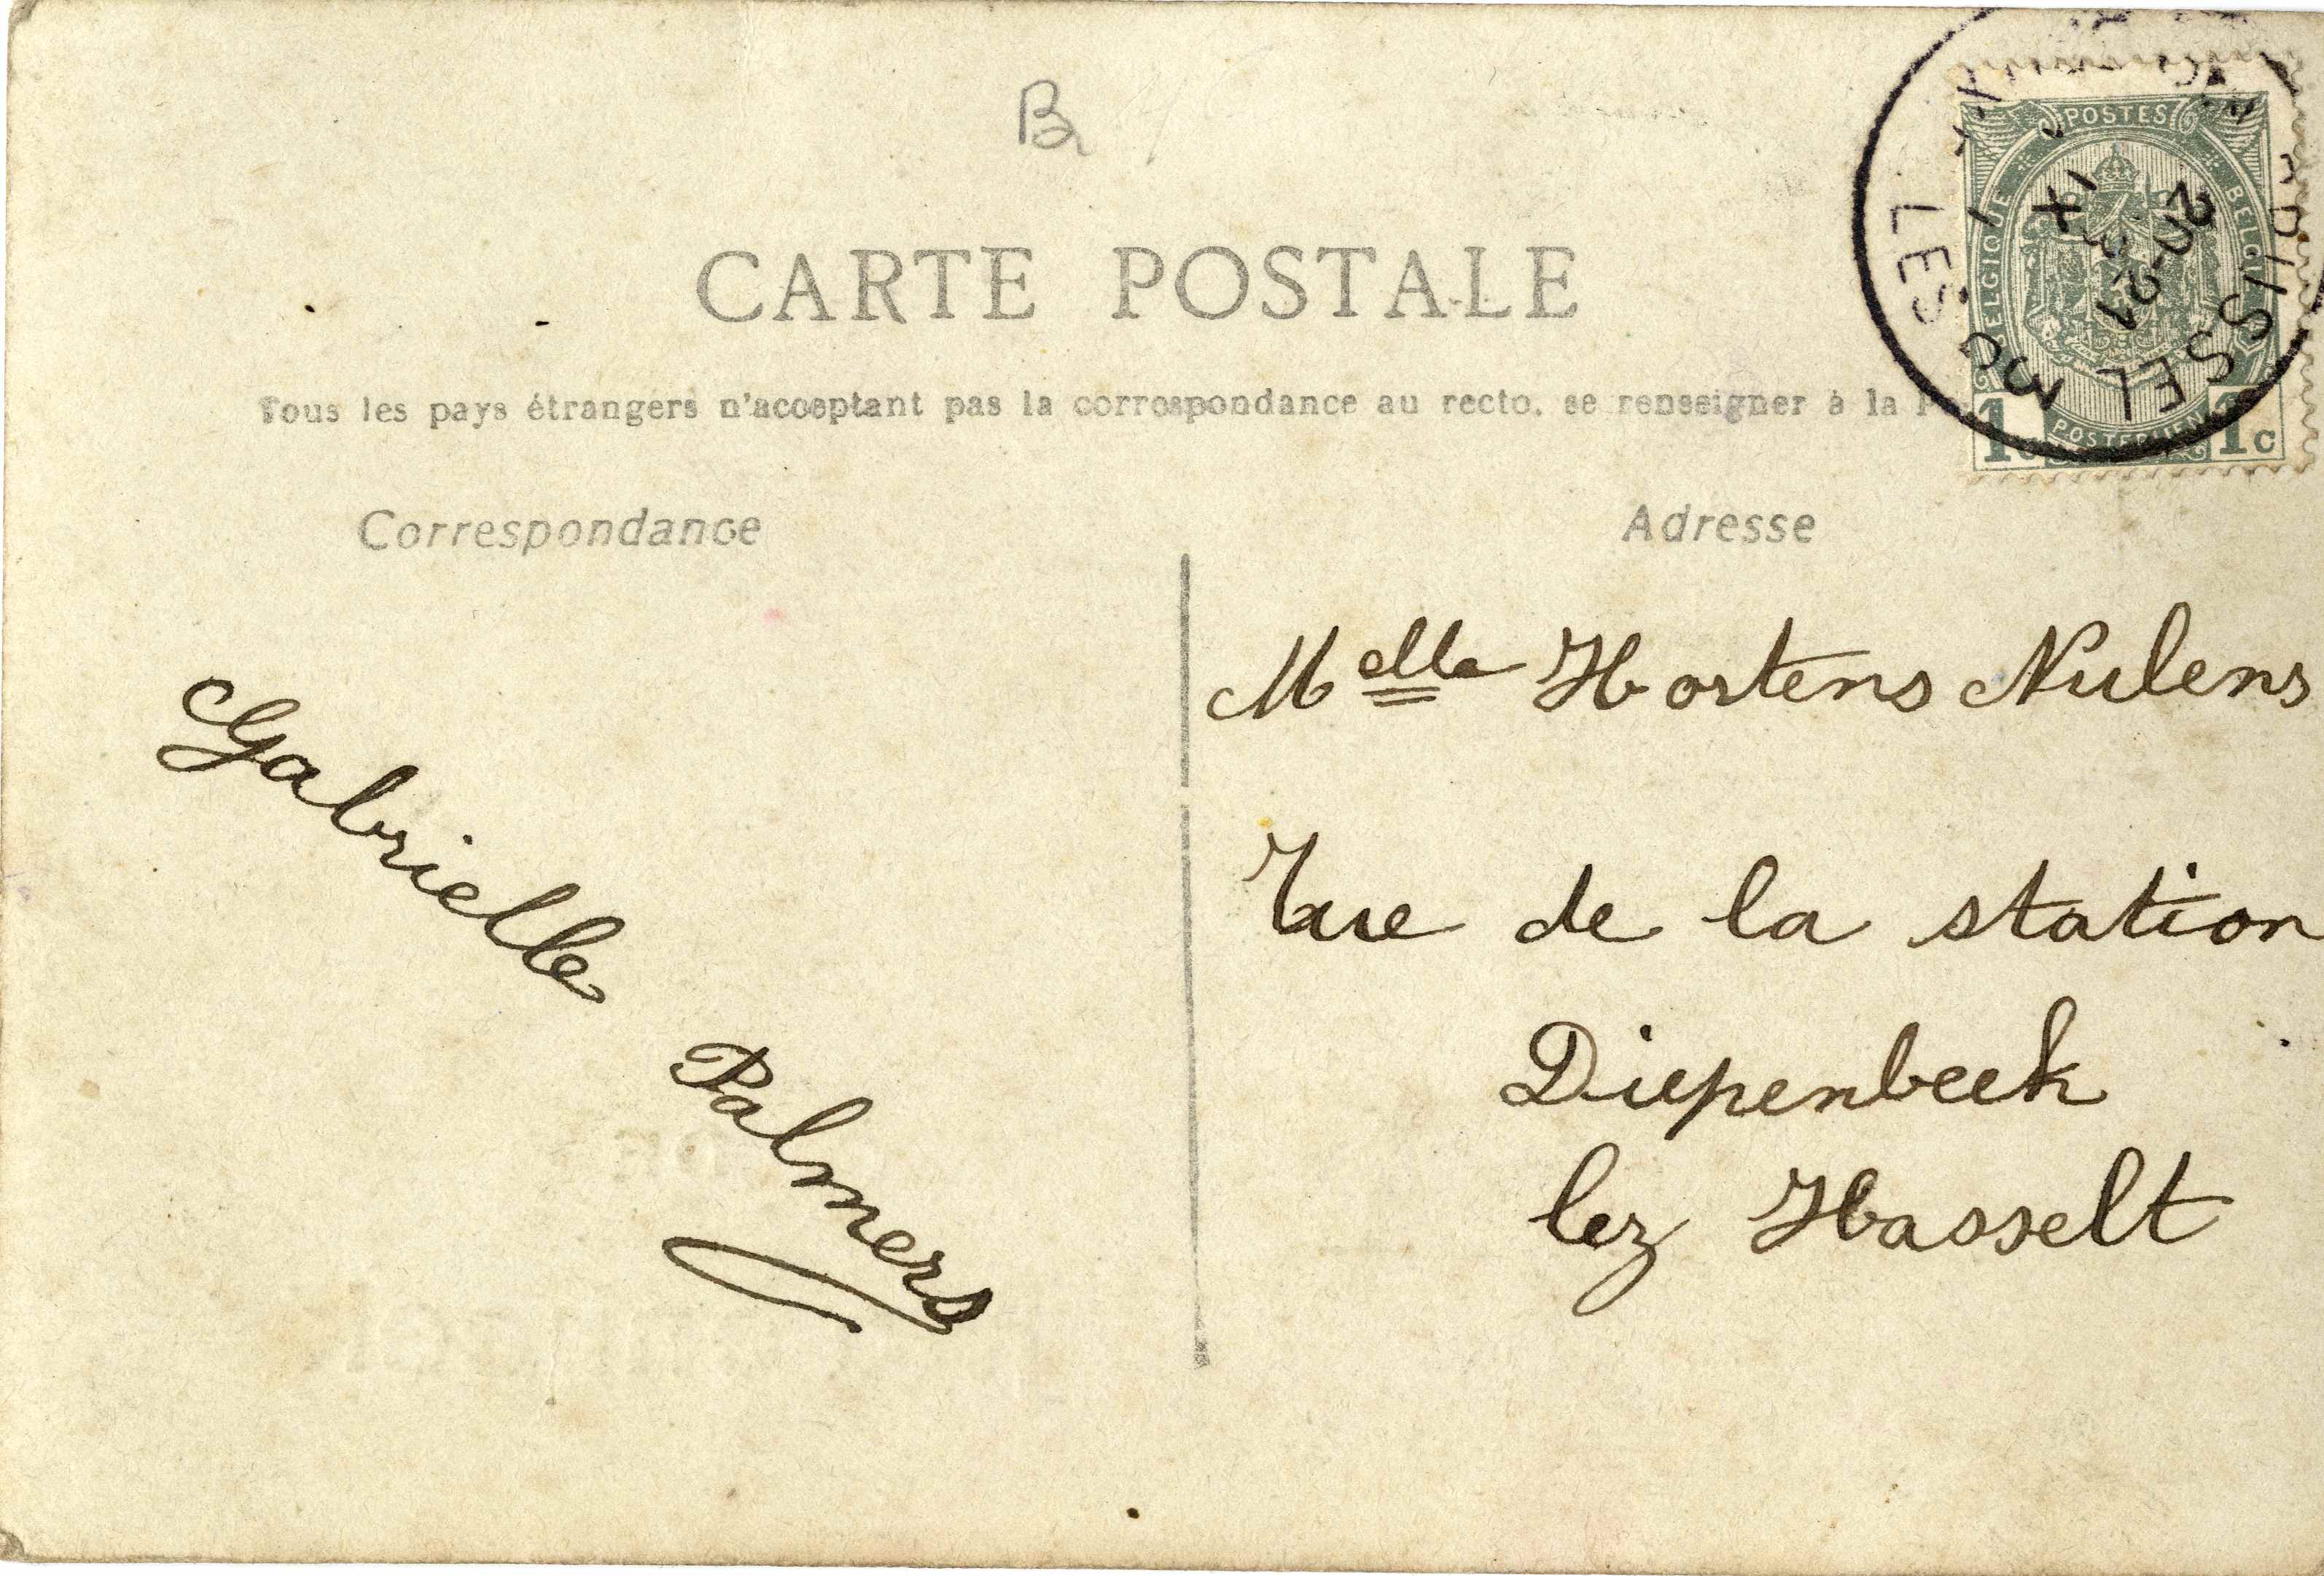 B
CARTE POSTALE
Tous les pays étrangers n'acceptant pas la correspondance au recto, se renseigner à la P
Correspondance
Adresse
POSTES
BELGIQUE
BELGIË
POSTERIJEN
1c
1c
BRUSSEL
20-21
IX
LES
Melle Hortens Nulens
Rue de la station
Diepenbeek
lez Hasselt
Gabrielle Palmers